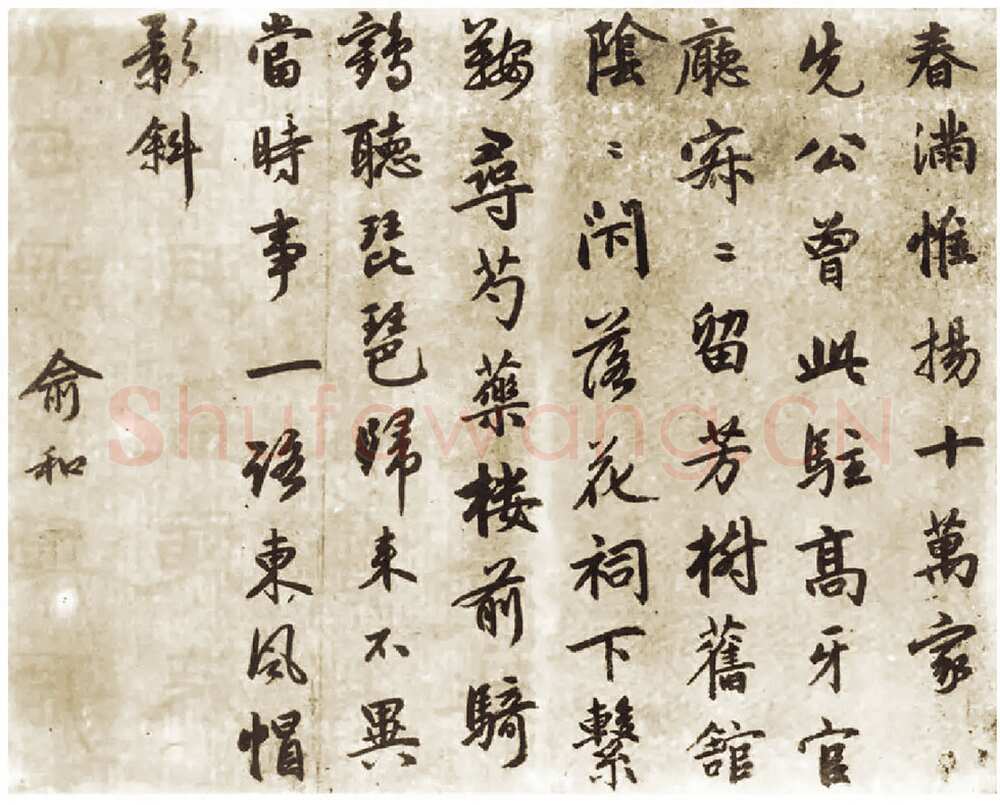 春滿惟揚十萬家
先公曾此駐高牙官
廳寂〻留芳樹舊館
陰〻閙落花祠下繫
鞍尋芍藥楼前騎
鶴聽琵琶歸来不異
當時事一路東風帽
影斜
俞和
Shufawang.CN